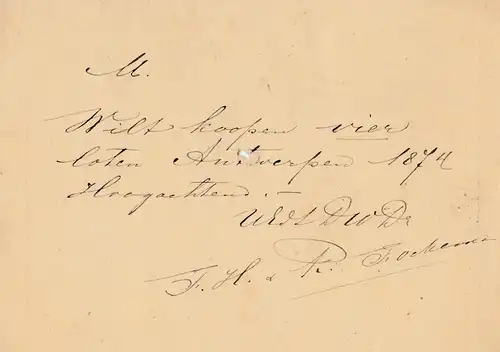 M.
Wilt koopen vier
loten Antwerpen 1874
Hoogachtend. –
UEdl DWDr
F. H. & K. Fockema